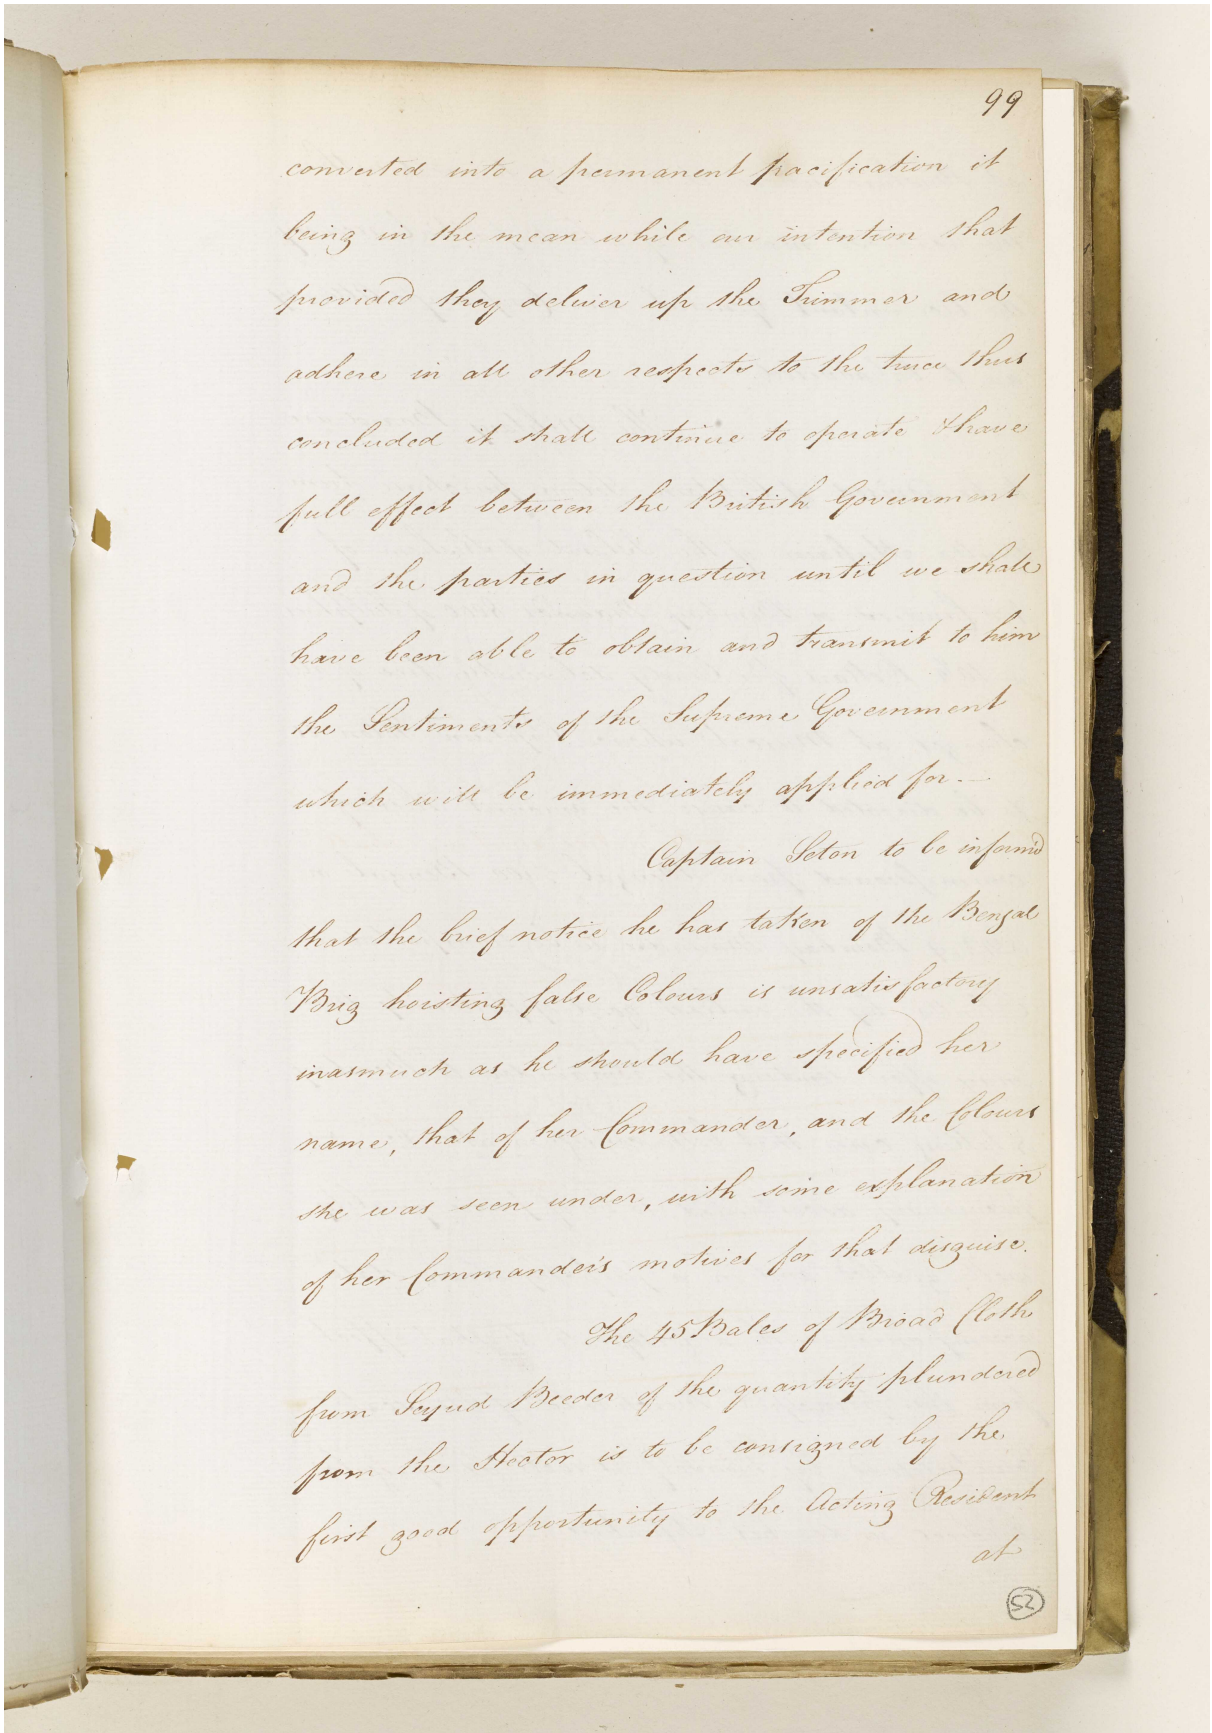 99
converted into a permanent pacification it
being in the mean while our intention that
provided they deliver up the Trimmer and
adhere in all other respects to the truce thus
concluded it shall continue to operate & have
full effect between the British Government
and the parties in question until we shall
have been able to obtain and transmit to him
the Sentiments of the Supreme Government
which will be immediately applied for. —
Captain Seton to be inform'd
that the brief notice he has taken of the Bengal
Brig hoisting false Colours is unsatisfactory
inasmuch as he should have specified her
name, that of her Commander, and the Colours
she was seen under, with some explanation
of her Commander's motives for that disguise.
The 45 Bales of Broad Cloth
from Seyud Beeder of the quantity plundered
from the Hector is to be consigned by the
first good opportunity to the Acting Resident
at
52